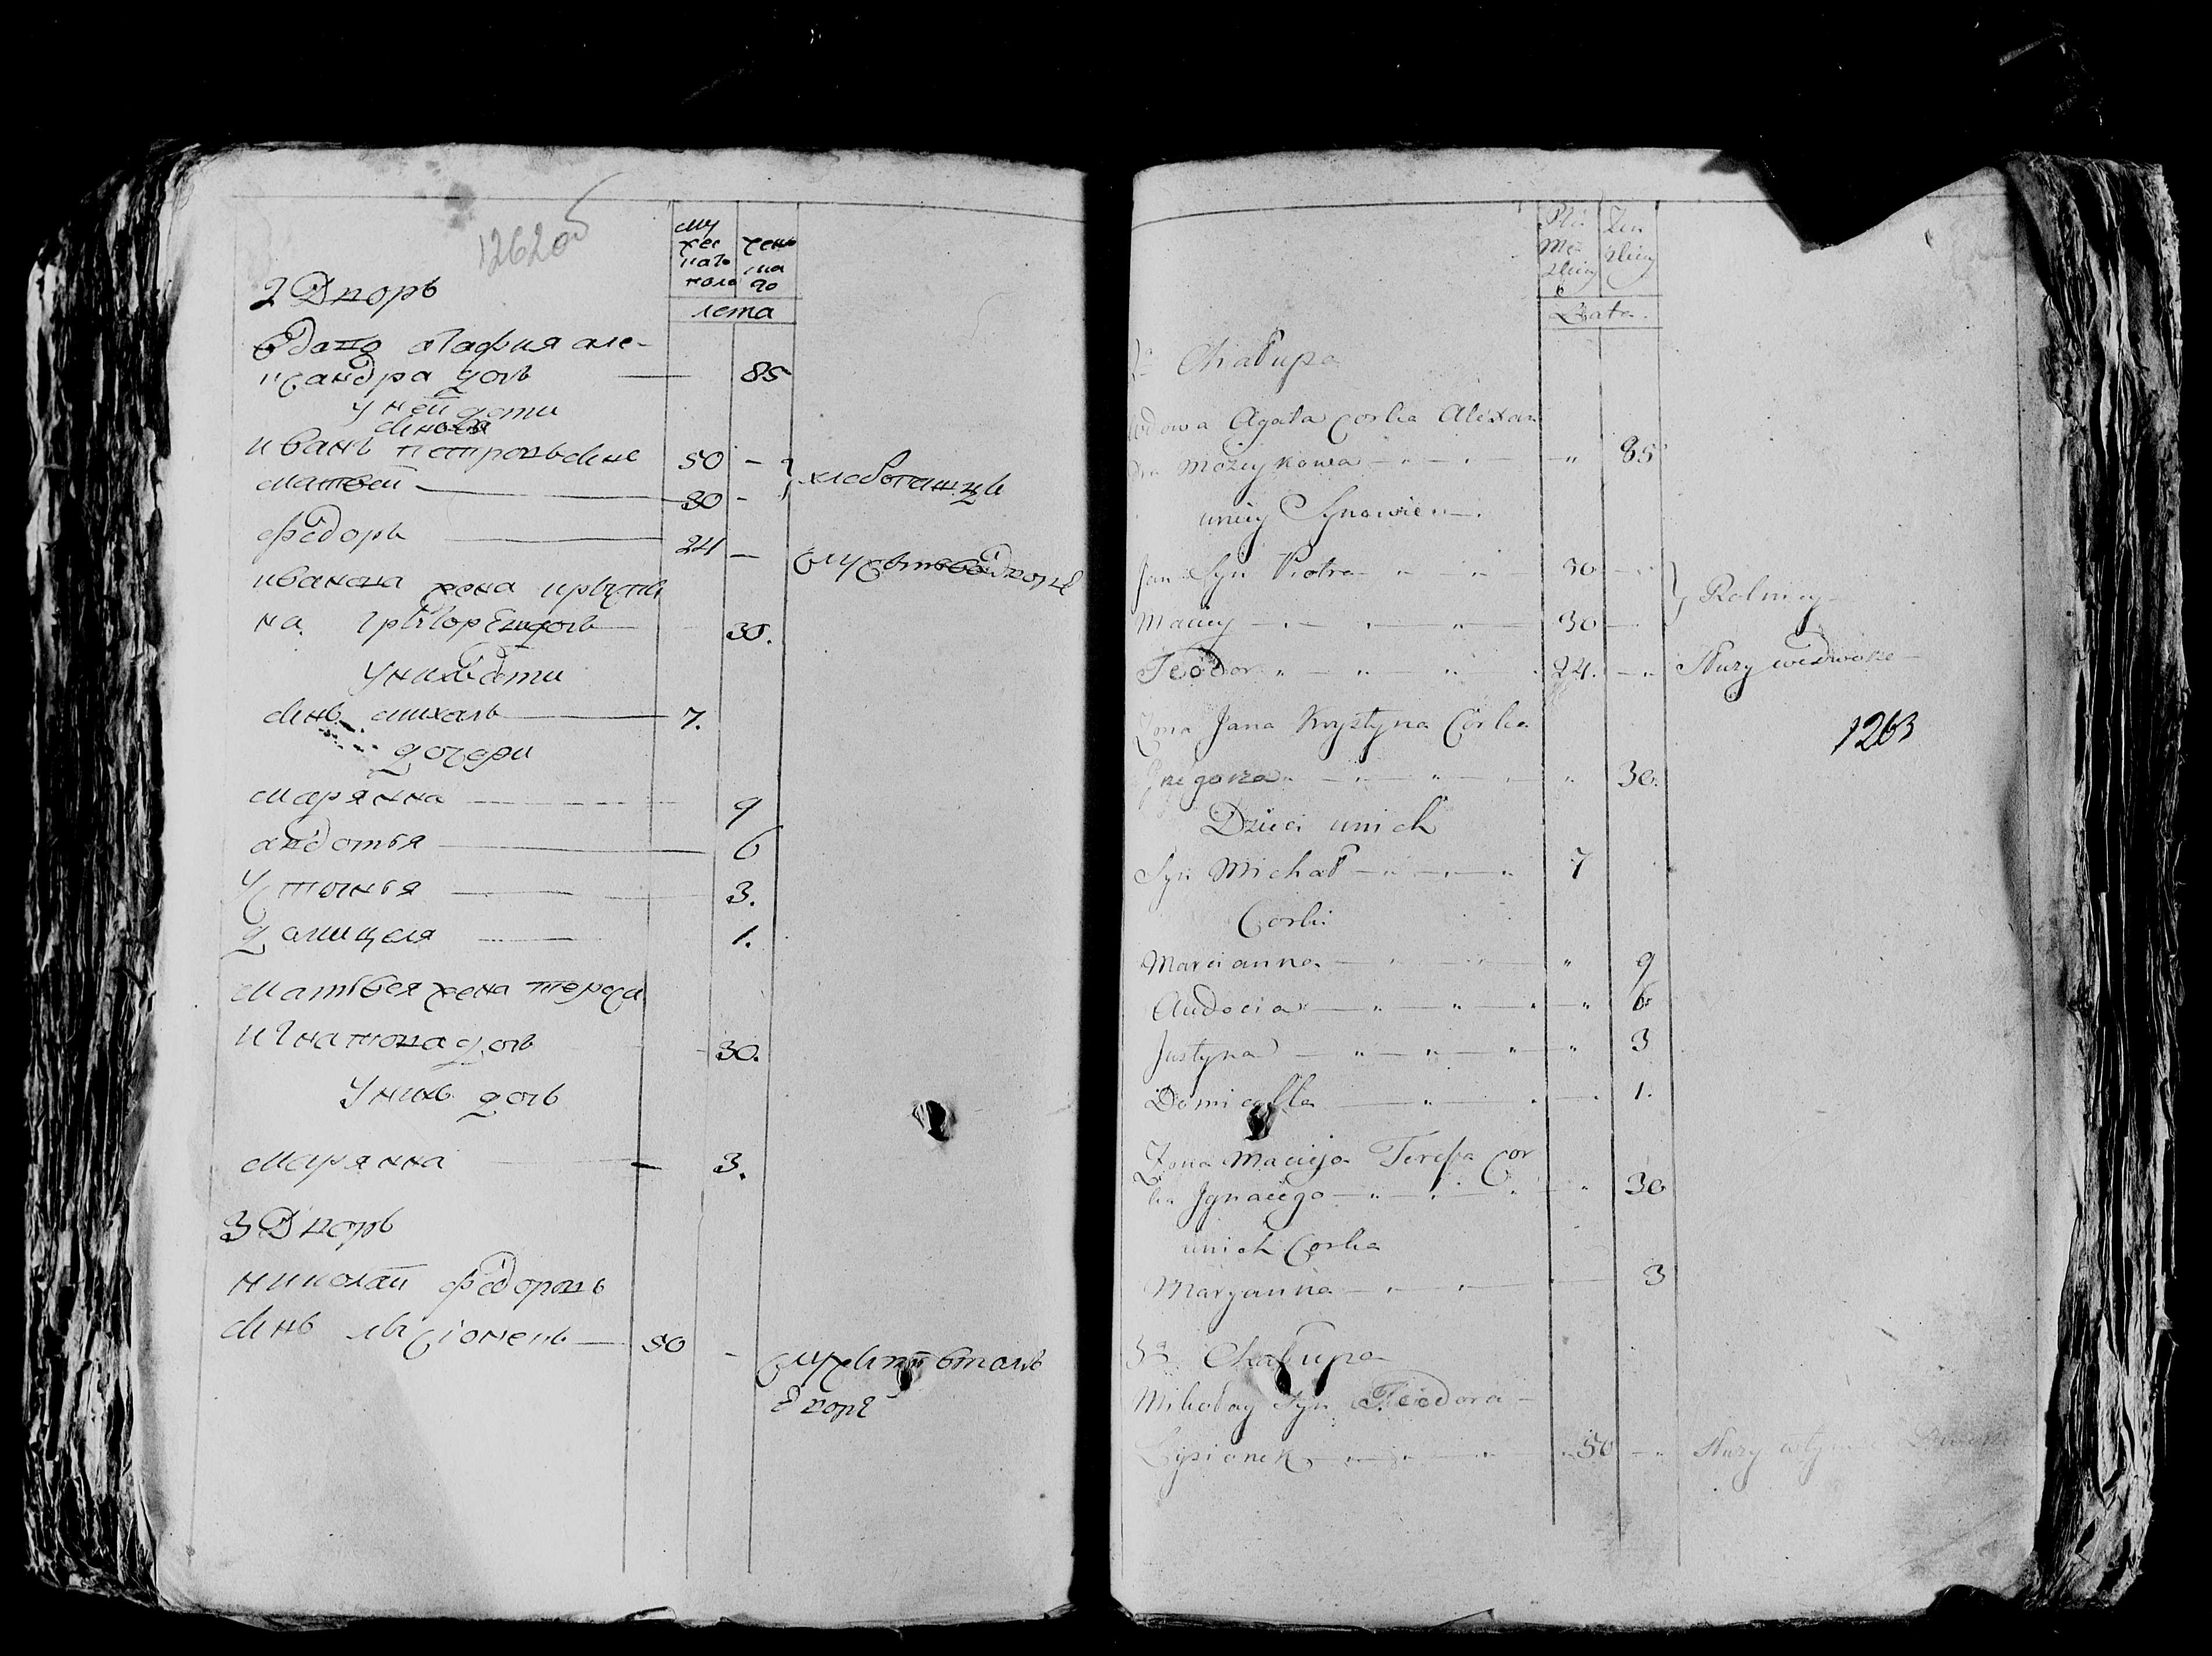 1262об
му
жес
каго
пола
жень
ска
го
лета
2 Дворъ
Вдова агафия але-
ксандра дочь 85
У ней дети
сыновья
иванъ петровъ сынъ 50 -
матвей 30 -
хлебопашцы
федоръ 24 -
служитъ в дворе
иванова жена крысти
на григорея дочь 30.
У них дети
сынъ михалъ 7.
дочери
марянна 9
авдотья 6
Устинья 3.
Домицеля 1.
матвея жена тереса
игнатова дочь 30.
У нихъ дочь
марянна 3.
3 Дворъ
николай федоровъ
сынъ лысіонекъ 50 -
служитъ в томъ
дворе
Płci
Męz
kiey
Zen
skiey
Lata
2a Chałupa
Wdowa Agata Corka Alexan
dra Mozeykowa " 85
u niey Synowie
Jan Syn Piotra 50
Maciey 30
Rolnicy
Teodor 24.
Służy we dworze
1263
Zona Jana Krystyna Córka
Grzegorza " 30.
Dzieci u nich
Syn Michał 7
Corki
Marcianna " 9
Audocia " 6
Justyna " 3
Domicella 1.
Zona Macieja Teressa Cor
ka Jgnacego " 30
u nich Corka
Maryanna 3
3a Chałupa
Mikołay Syn Teodora
Łysionek 50
Służy w tym Dworze